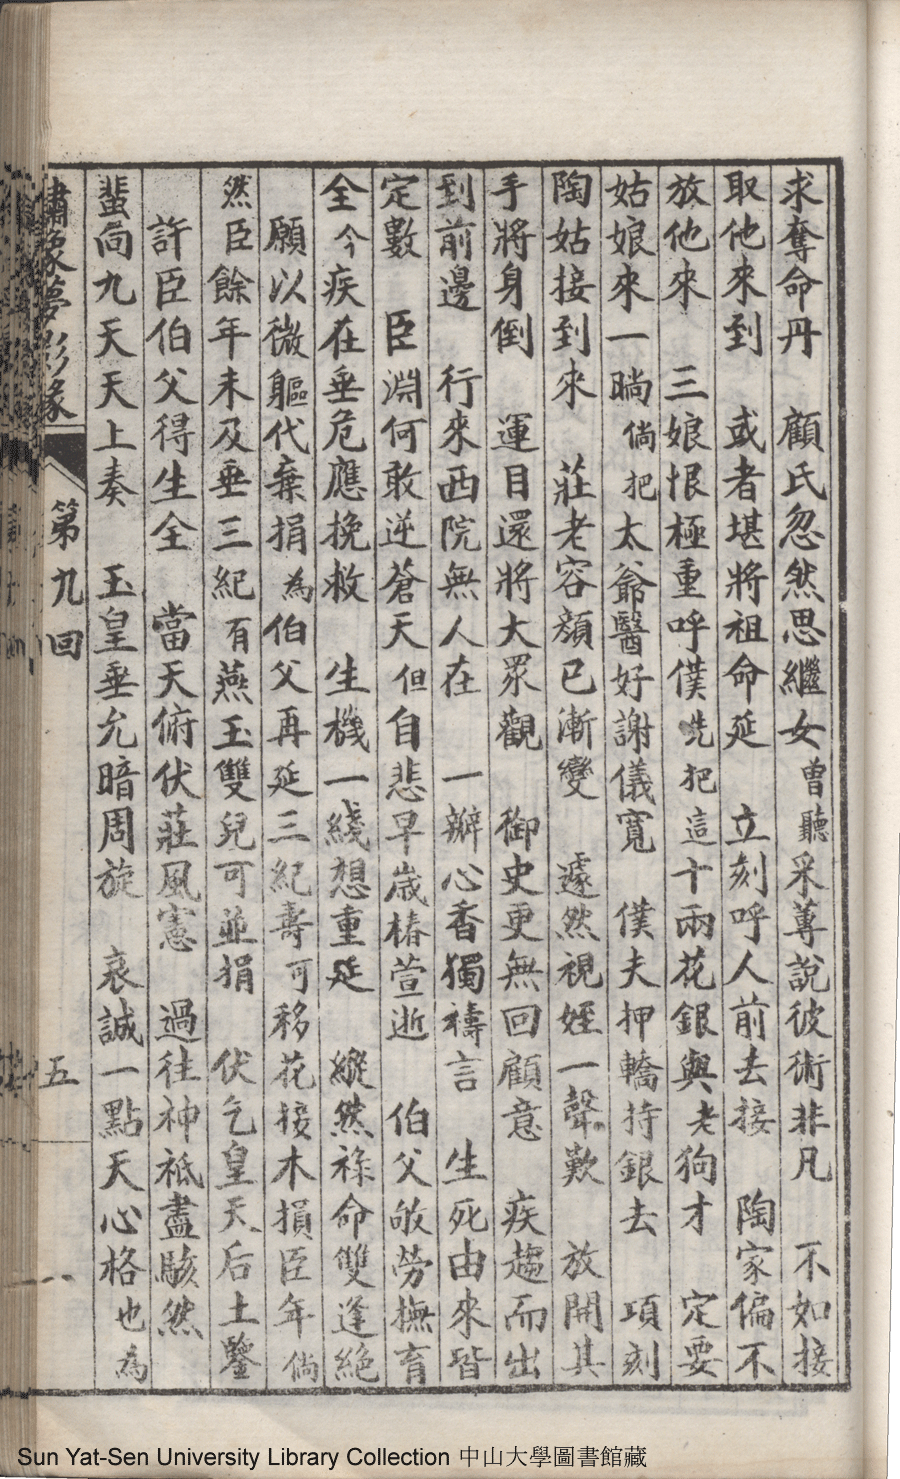 求奪命丹　顧氏忽然思繼女曾聽采蓴說彼術非凡　不如接
取他來到　或者堪將祖命延　立刻呼人前去接　陶家偏不
放他來　三娘恨極重呼僕先把這十兩花銀與老狗才　定要
姑娘來一晌倘把太爺醫好謝儀寬　僕夫押轎持銀去　項刻
陶姑接到來　莊老容顏已漸變　遽然視姪一聲歎　放開其
手將身倒　運目還將大眾觀　御史更無回顧意　疾趨而出
到前邊　行來西院無人在　一瓣心香獨禱言　生死由來皆
定數　臣淵何敢逆蒼天但自悲早歲椿萱逝　伯父敂勞撫育
全今疾在垂危應挽救　生機一綫想重延　縱然祿命雙逢絕
願以微軀代棄捐為伯父再延三紀壽可移花接木損臣年倘
然臣餘年未及垂三紀有燕玉雙兒可並捐　伏乞皇天后土鑒
許臣伯父得生全　當天俯伏莊風憲　過往神祇盡駭然
蜚向九天天上奏　玉皇垂允暗周旋　衷誠一點天心格也為
繡像夢影緣　第九回　五
Sun Yat-Sen University Library Collection 中山大學圖書館藏